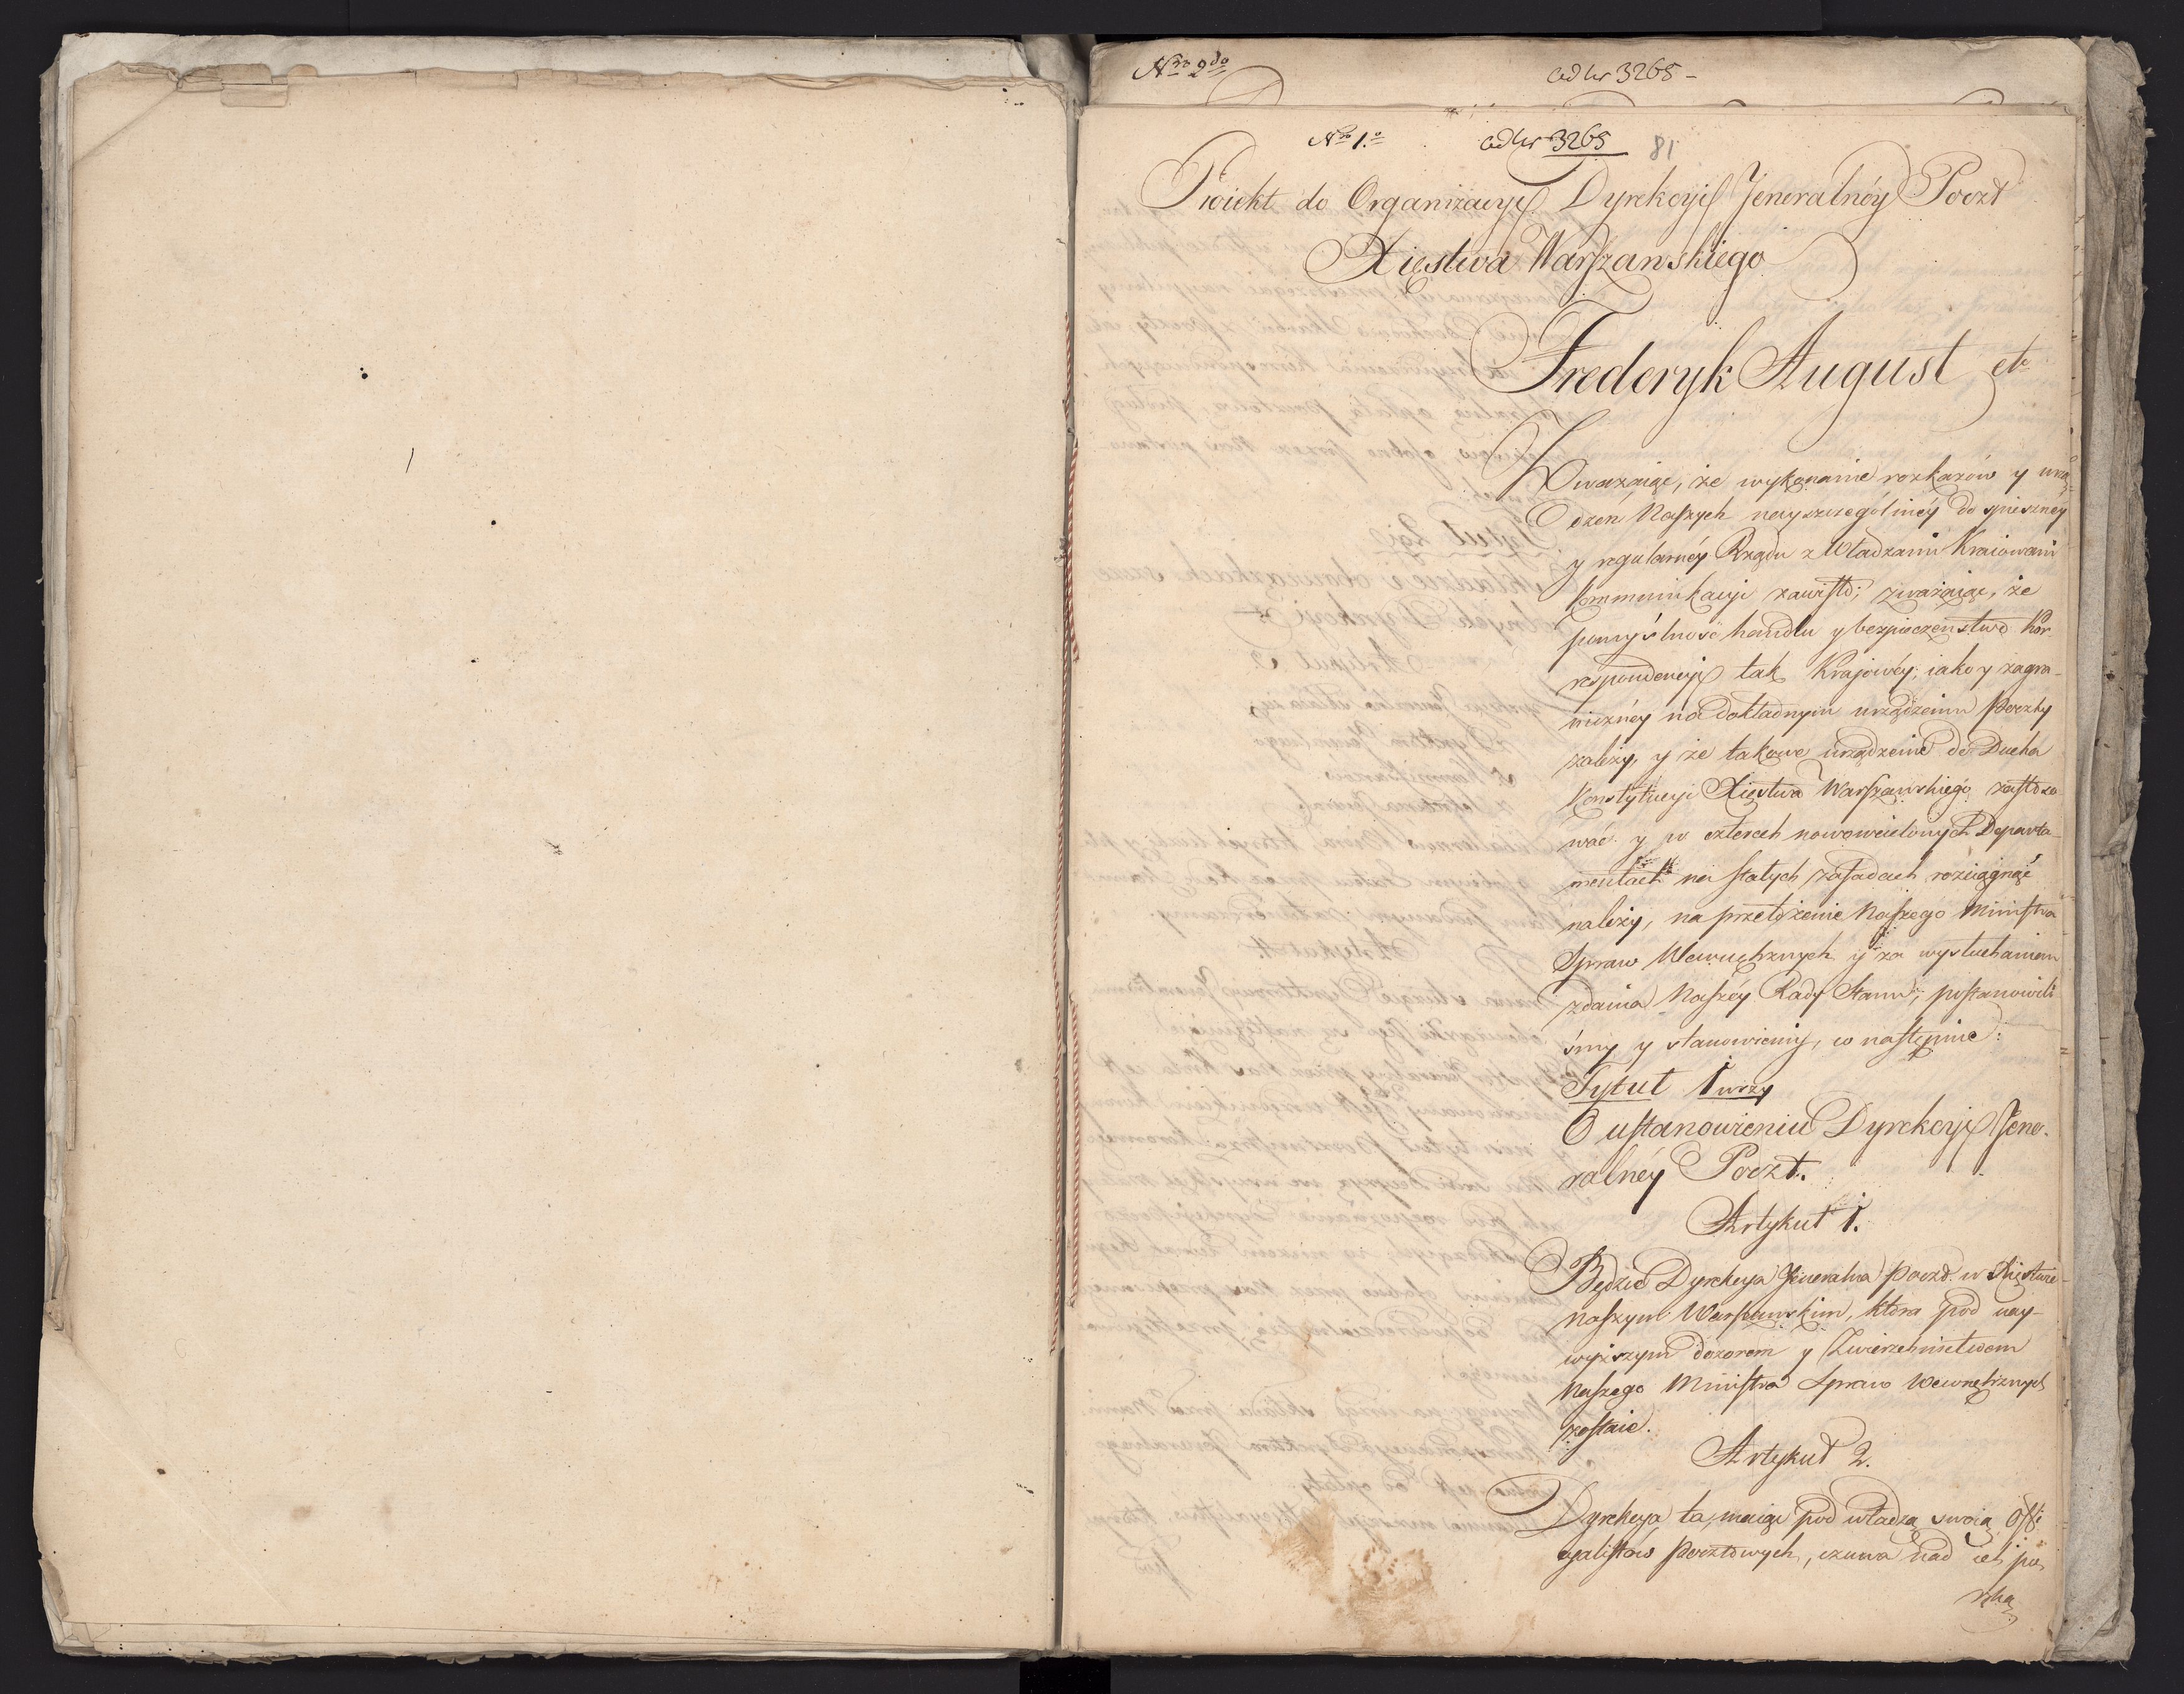 Nro 2do
ad Nr 3265 -
Nro 1o
ad Nr 3265
81
Proiekt do Organizacyi Dyrekcyi Jeneralnéy Poczt
Xięstwa Warszawskiego
Frederyk August etc
Zwazaiąc, że wykonanie rozkazów y urzą=
dzen Naszych nayszczegolniéy do spieszney
y regularnéy Rządu z Władzami Kraiowemi
kommunikacyi zawisło; zwazaiąc, że
pomyślność handlu y bezpieczenstwo Kor-
respondencyi tak Krajowéy, iako y zagra-
niczney na dokładnym urządzeniu Poczty
zależy, y że takowe urządzenie do Ducha
Konstytucyi Xięstwa Warszawskiego zastoso
wać y w czterech nowowcielonych Departa-
mentach na stałych zasadach rozciągnąć
należy, na przełożenie Naszego Ministra
Spraw Wewnętrznych y za wysłuchaniem
zdania Naszéy Rady Stanu, postanowili
śmy y stanowiemy, co następuie:
Tytuł 1wszy
O ustanowieniu Dyrekcyi Jene-
ralnéy Poczt.
Artykuł 1.
Będzie Dyrekcya Jeneralna Poczt w Xięstwie
Naszym Warszawskim, która pod nay-
wyższym dozorem y Zwierzchnictwem
Naszego Ministra Spraw Wewnętrznych
zostaie.
Artykuł 2.
Dyrekcya ta, maiąc pod władzą swoią Offi
cyalistów Pocztowych, czuwa nad ich po-
rządk